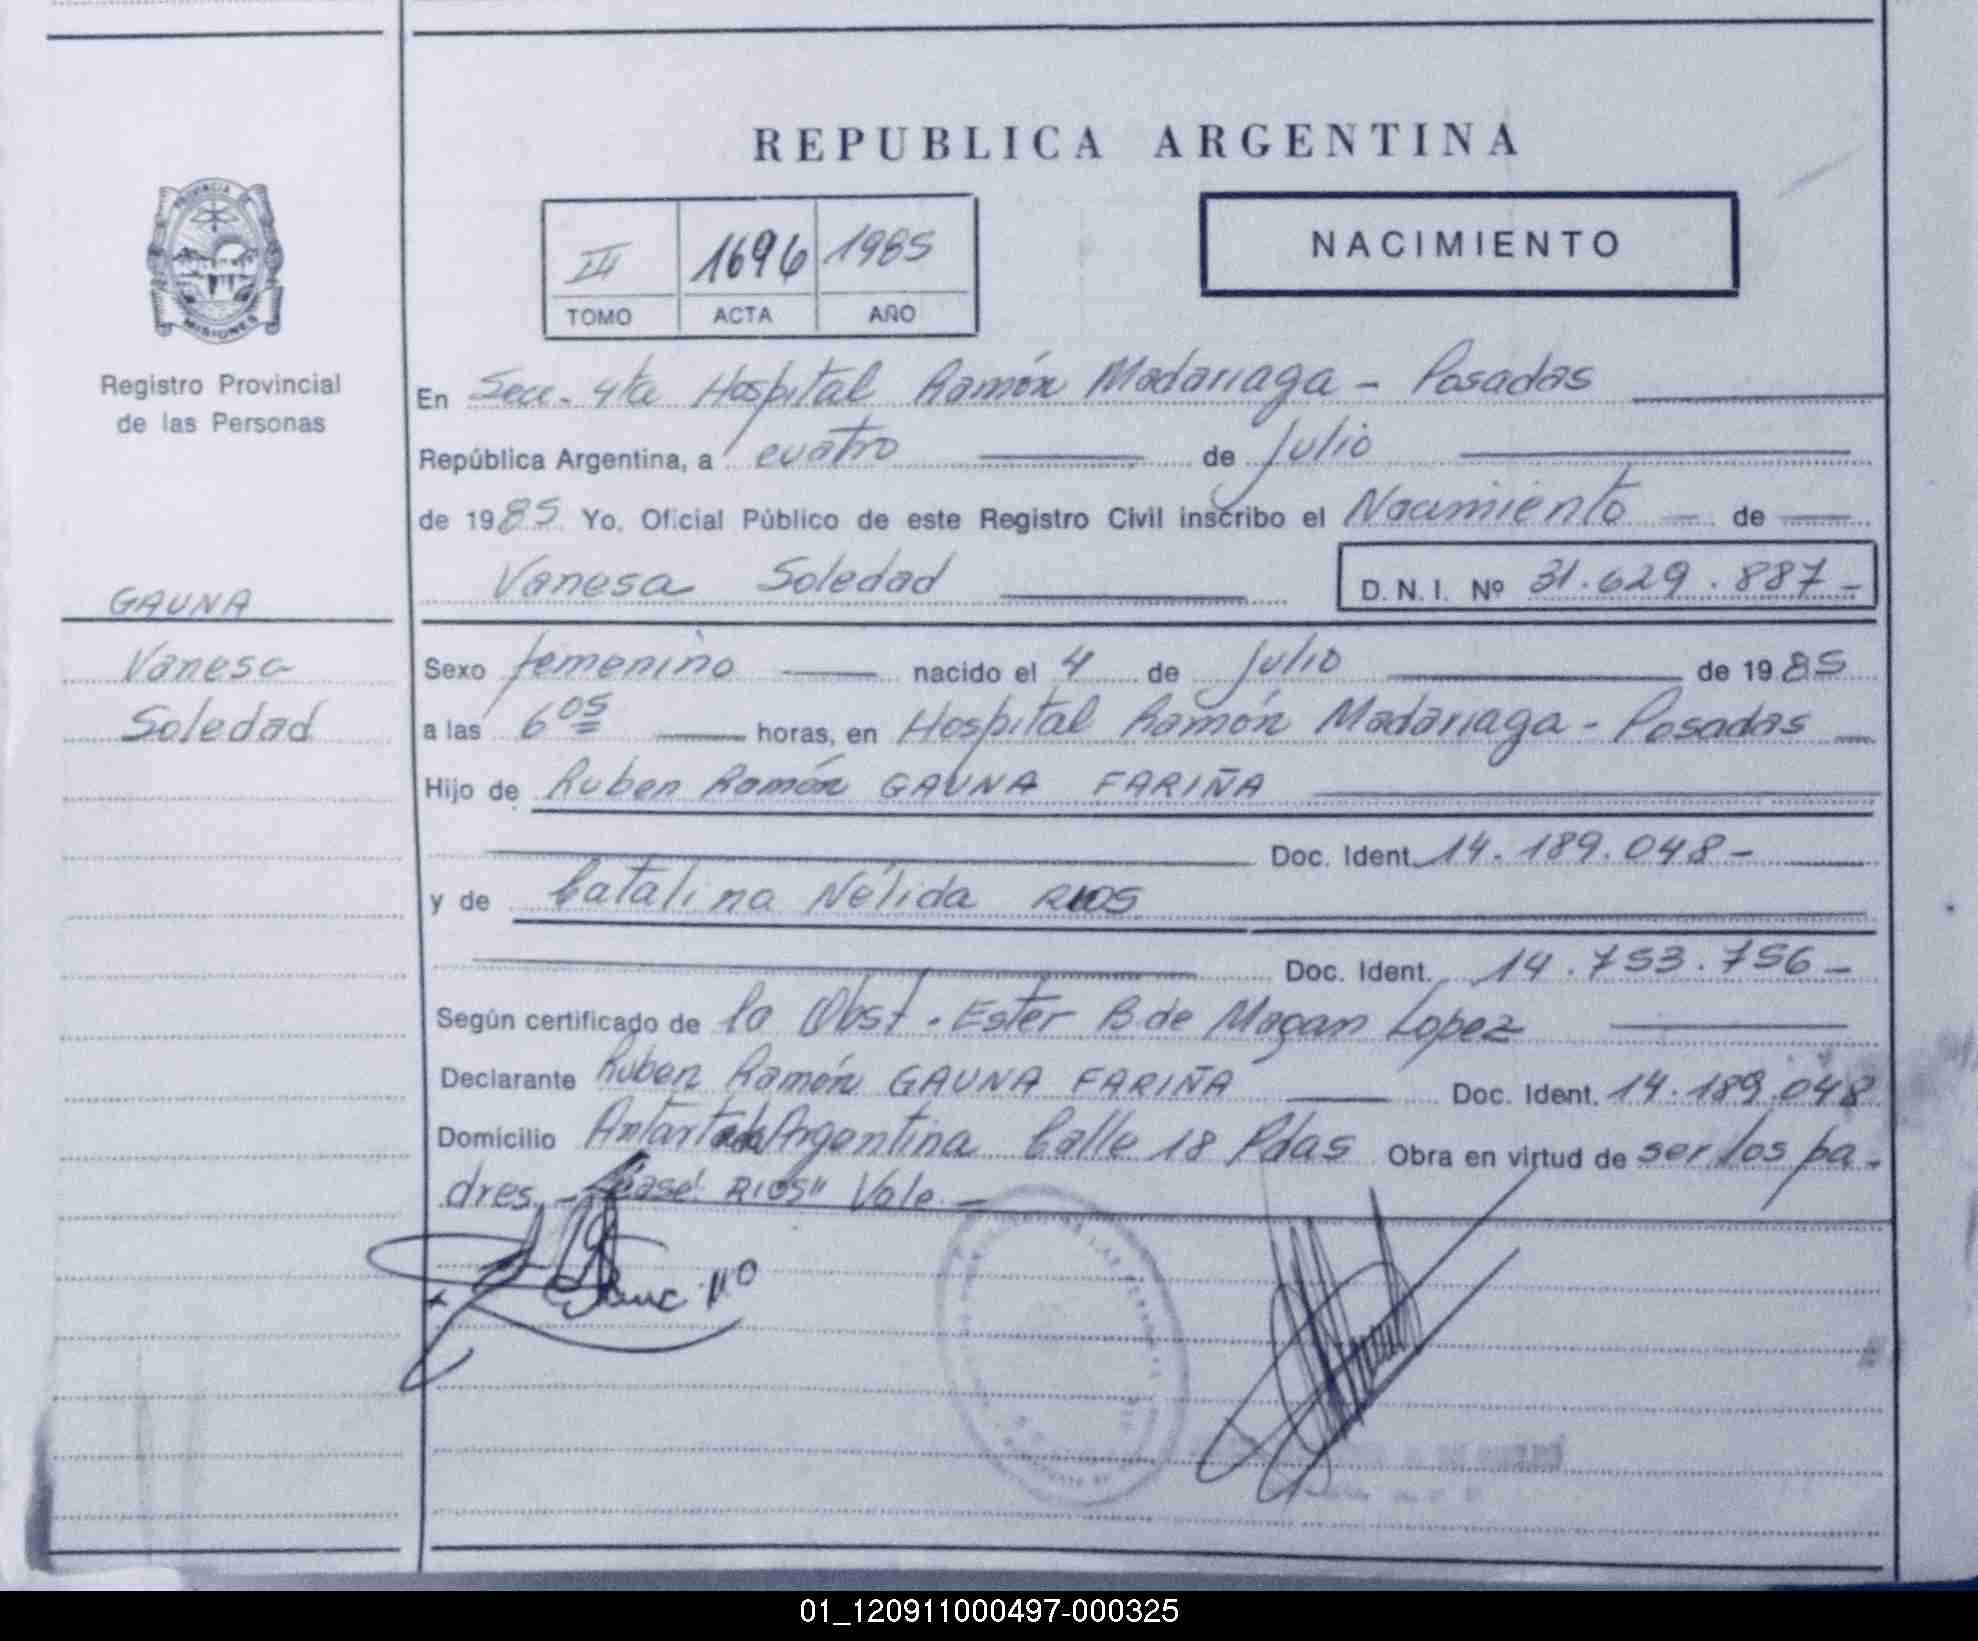 REPUBLICA ARGENTINA
PROVINCIA DE
MISIONES
Registro Provincial
de las Personas
III 1696 1985
TOMO ACTA AÑO
NACIMIENTO
En Secc. 4ta Hospital Ramón Madariaga - Posadas
República Argentina, a cuatro de Julio
de 1985 Yo, Oficial Público de este Registro Civil inscribo el Nacimiento de
Vanesa Soledad D.N.I. Nº 31.629.887-
GAUNA
Vanesa
Soledad
Sexo femenino nacido el 4 de Julio de 1985
a las 6 05 horas, en Hospital Ramón Madariaga - Posadas
Hijo de Ruben Ramón GAUNA FARIÑA
Doc. Ident. 14.189.048-
y de Catalina Nélida RIOS
Doc. Ident. 14.753.756-
Según certificado de la Obst. Ester B de Magan Lopez
Declarante Ruben Ramón GAUNA FARIÑA Doc. Ident. 14.189.048
Domicilio Argentina Calle 18 Pdas Obra en virtud de ser los pa-
dres.- Lease: RIOS" Vale.-
01_120911000497-000325